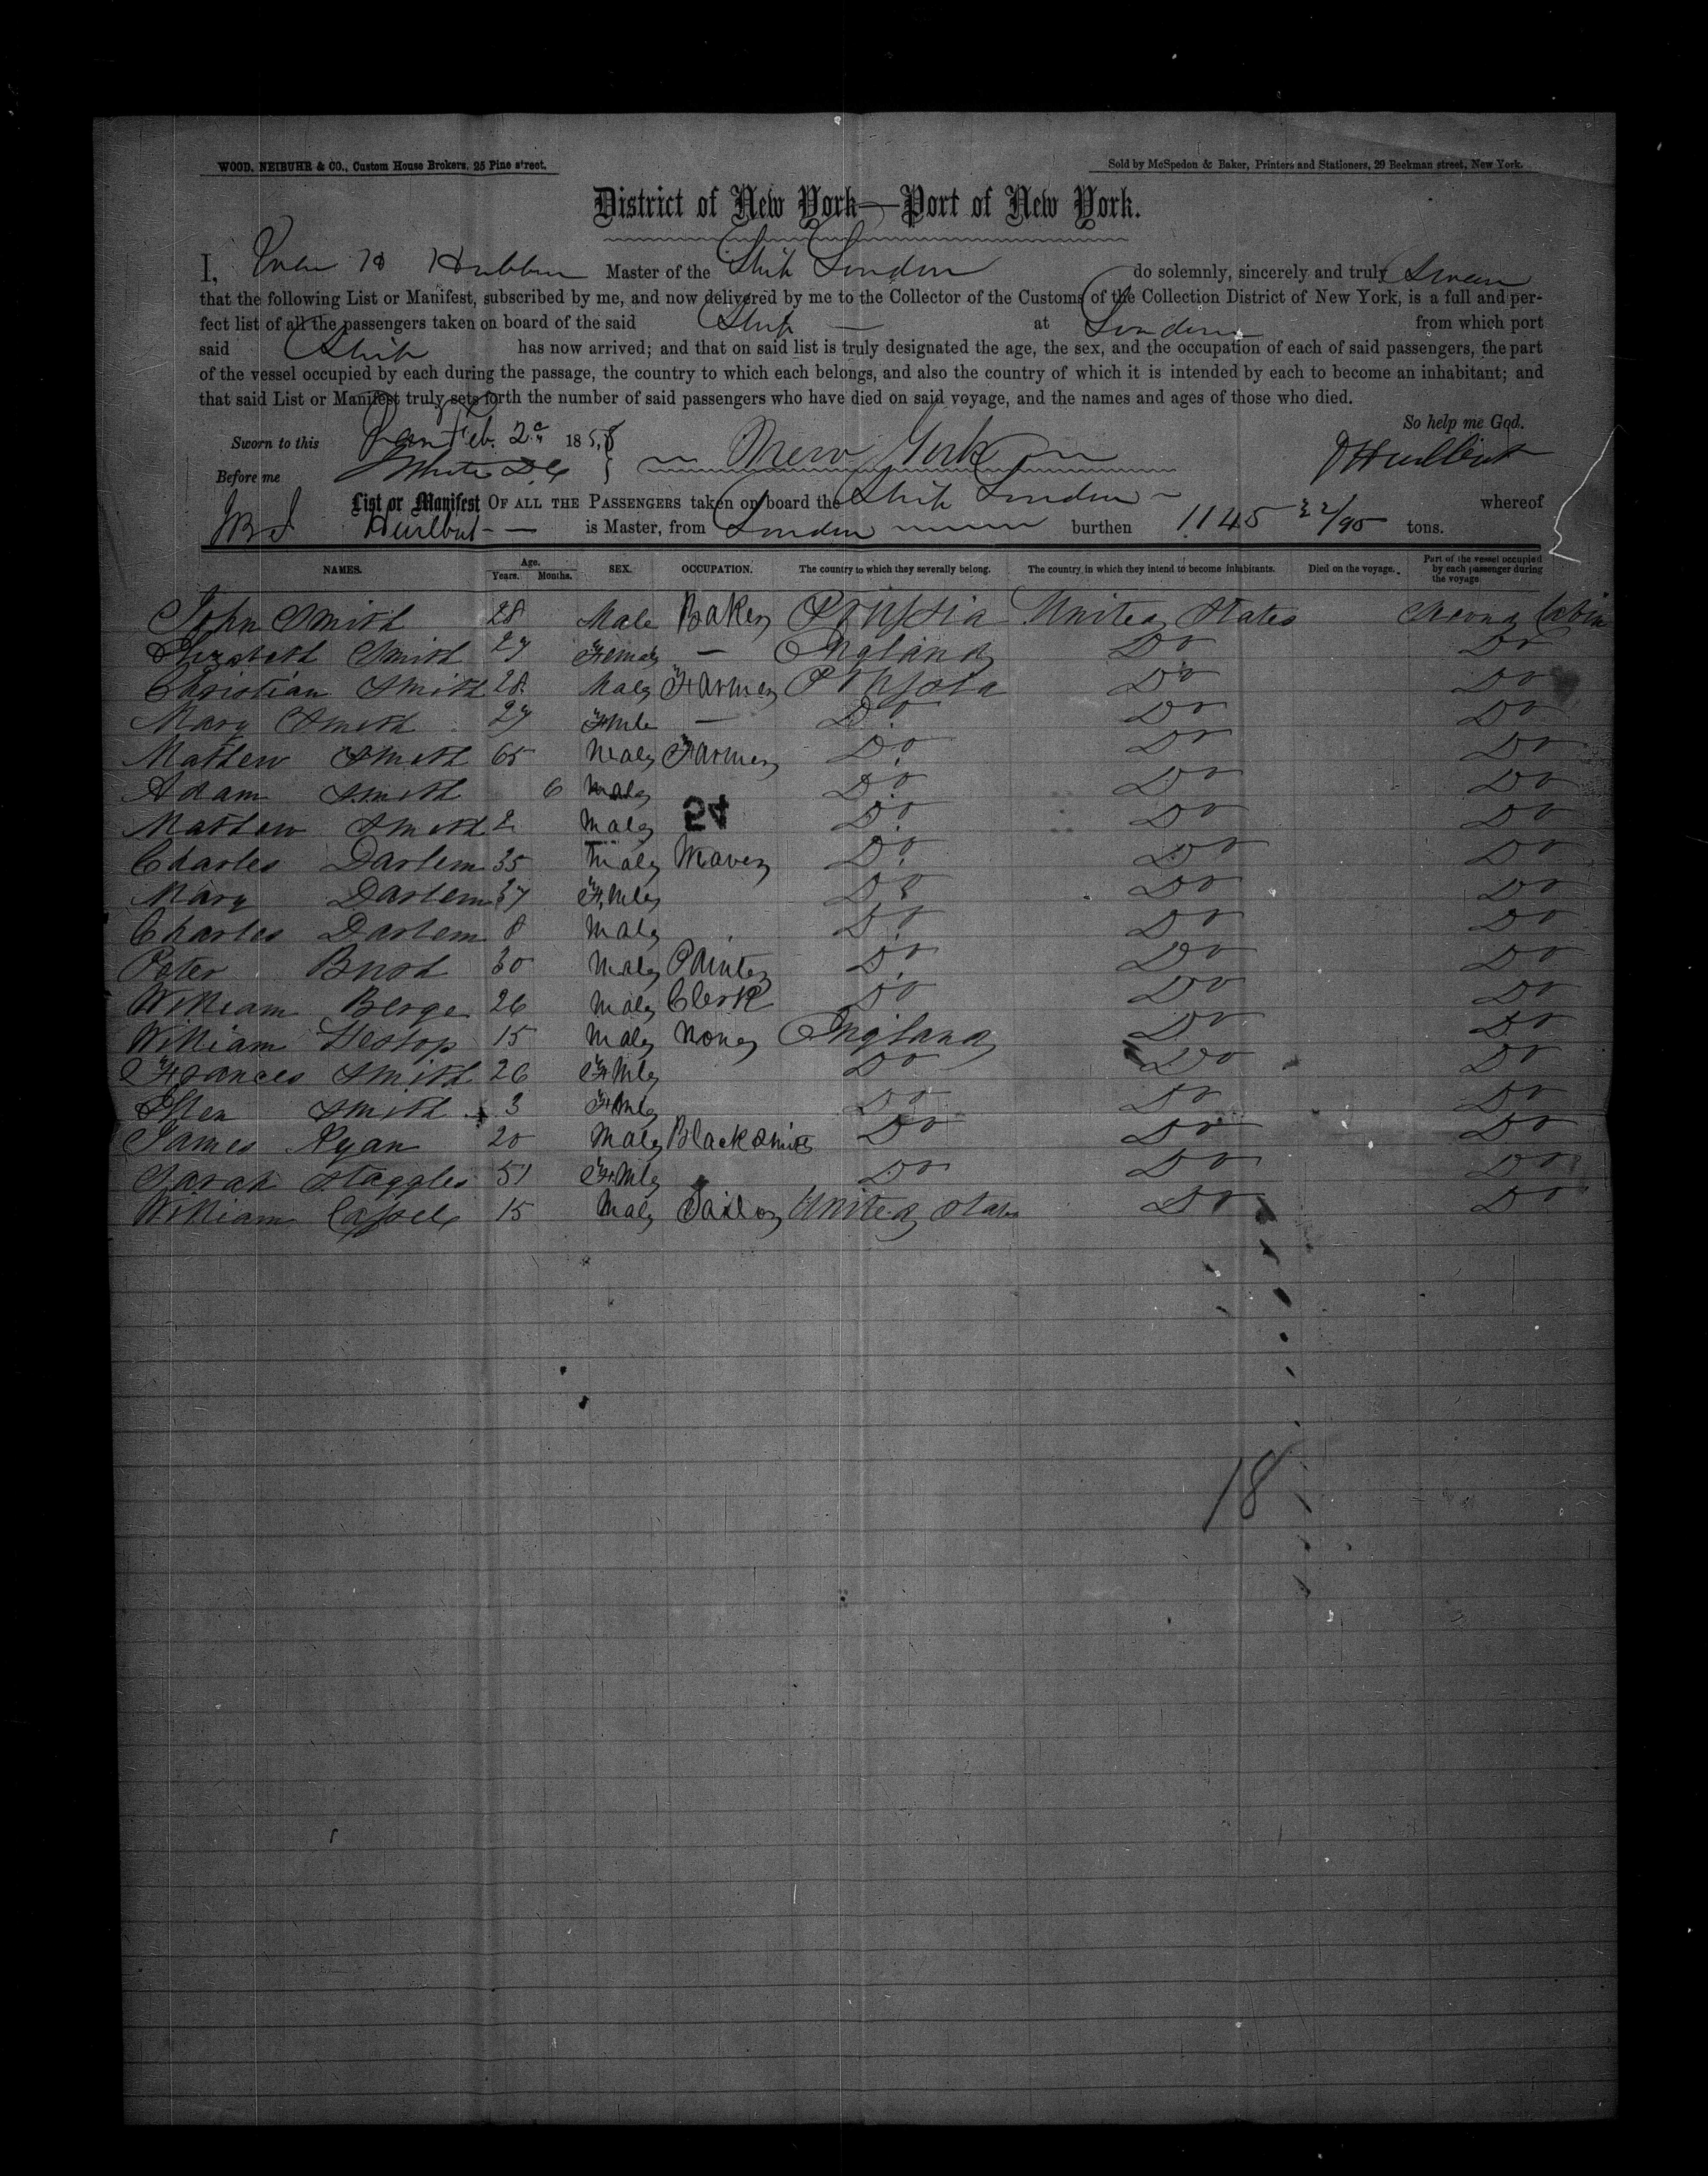 WOOD, NEIBUHR & CO., Custom House Brokers, 25 Pine street.
Sold by McSpedon & Baker, Printers and Stationers, 29 Beekman street, New York.
District of New York—Port of New York.
I, Master of the Ship London do solemnly, sincerely and truly Swear
that the following List or Manifest, subscribed by me, and now delivered by me to the Collector of the Customs of the Collection District of New York, is a full and per-
fect list of all the passengers taken on board of the said Ship — at London from which port
said Ship has now arrived; and that on said list is truly designated the age, the sex, and the occupation of each of said passengers, the part
of the vessel occupied by each during the passage, the country to which each belongs, and also the country of which it is intended by each to become an inhabitant; and
that said List or Manifest truly sets forth the number of said passengers who have died on said voyage, and the names and ages of those who died.
So help me God.
Sworn to this Feb. 2d 1858 New York Hurlbut
Before me White
List or Manifest OF ALL THE PASSENGERS taken on board the Ship London whereof
Hurlbut is Master, from London burthen 1145 22/95 tons.
NAMES. Age. Years. Months. SEX. OCCUPATION. The country to which they severally belong. The country in which they intend to become inhabitants. Died on the voyage. Part of the vessel occupied by each passenger during the voyage
John Smith 28 Male Baker Prussia United States Second Cabin
Elizabeth Smith 27 Female — England Do Do
Christian Smith 28 Male Farmer Prussia Do Do
Mary Smith 27 Fmle — Do Do Do
Mathew Smith 65 Male Farmer Do Do Do
Adam Smith 6 Male Do Do Do
Mathew Smith 2 Male Do Do Do
24
Charles Darlem 35 Male Weaver Do Do Do
Mary Darlem 37 Fmle Do Do Do
Charles Darlem 8 Male Do Do Do
Peter Bush 30 Male Painter Do Do Do
William Berge 26 Male Clerk Do Do Do
William Heslop 15 Male None England Do Do
Frances Smith 26 Fmle Do Do Do
Ellen Smith 3 Fmle Do Do Do
James Ryan 20 Male Blacksmith Do Do Do
Sarah Staggles 51 Fmle Do Do Do
William Cassell 15 Male Sailor United States Do Do
18